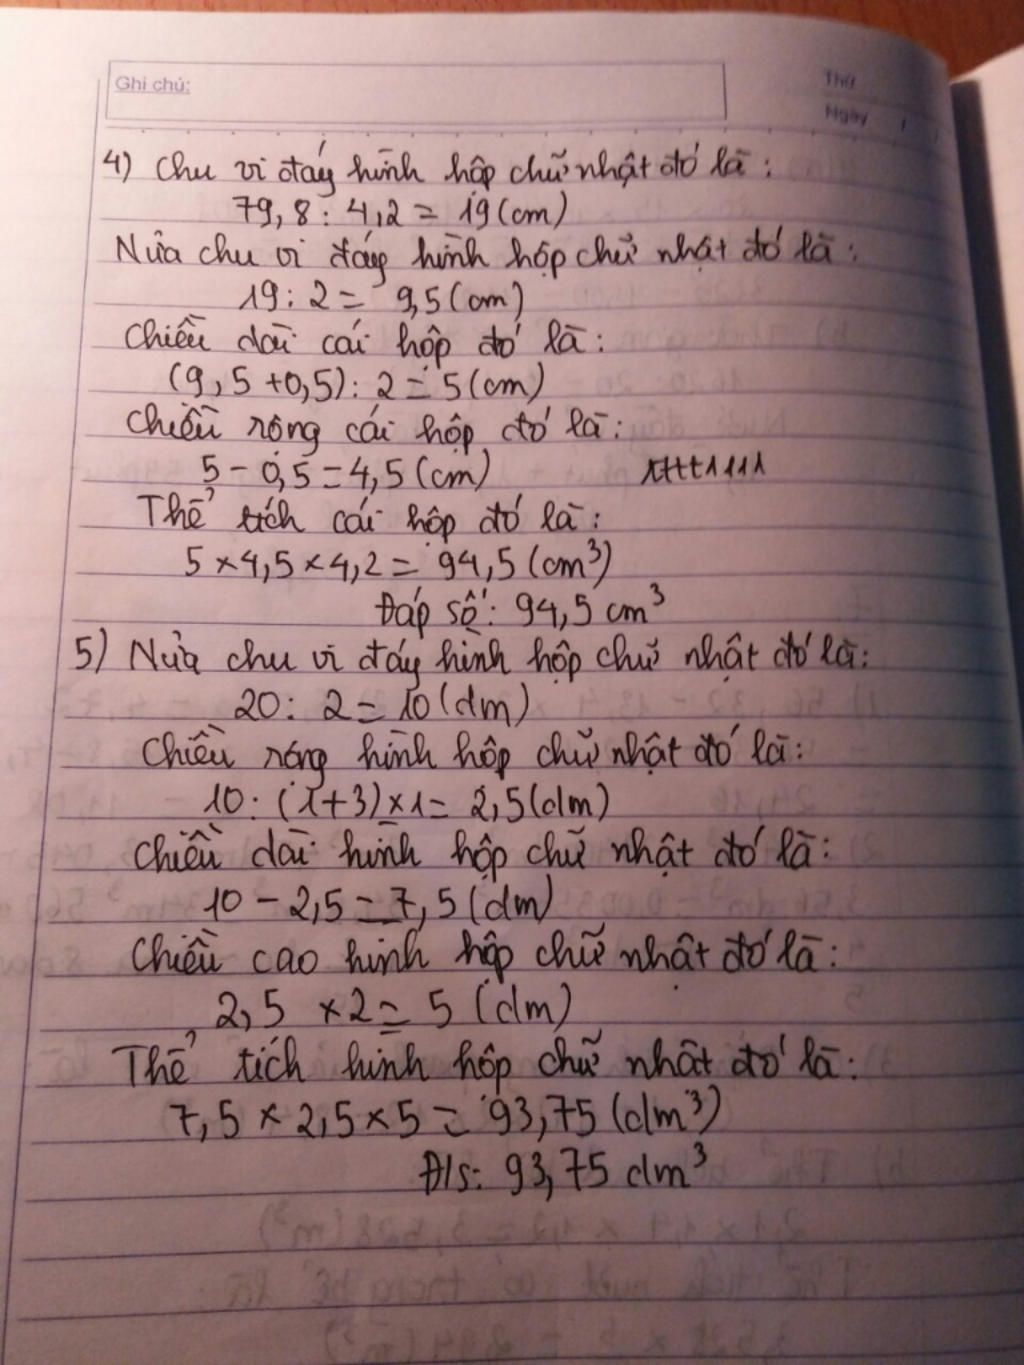 Ghi chú:
Thứ
Ngày / /
4) Chu vi đáy hình hộp chữ nhật đó là:
79,8 : 4,2 = 19 (cm)
Nửa chu vi đáy hình hộp chữ nhật đó là:
19 : 2 = 9,5 (cm)
Chiều dài cái hộp đó là:
(9,5 + 0,5) : 2 = 5 (cm)
Chiều rộng cái hộp đó là:
5 - 0,5 = 4,5 (cm)
Thể tích cái hộp đó là:
5 × 4,5 × 4,2 = 94,5 (cm³)
Đáp số: 94,5 cm³
5) Nửa chu vi đáy hình hộp chữ nhật đó là:
20 : 2 = 10 (dm)
Chiều rộng hình hộp chữ nhật đó là:
10 : (1+3) × 1 = 2,5 (dm)
Chiều dài hình hộp chữ nhật đó là:
10 - 2,5 = 7,5 (dm)
Chiều cao hình hộp chữ nhật đó là:
2,5 × 2 = 5 (dm)
Thể tích hình hộp chữ nhật đó là:
7,5 × 2,5 × 5 = 93,75 (dm³)
Đ/s: 93,75 dm³